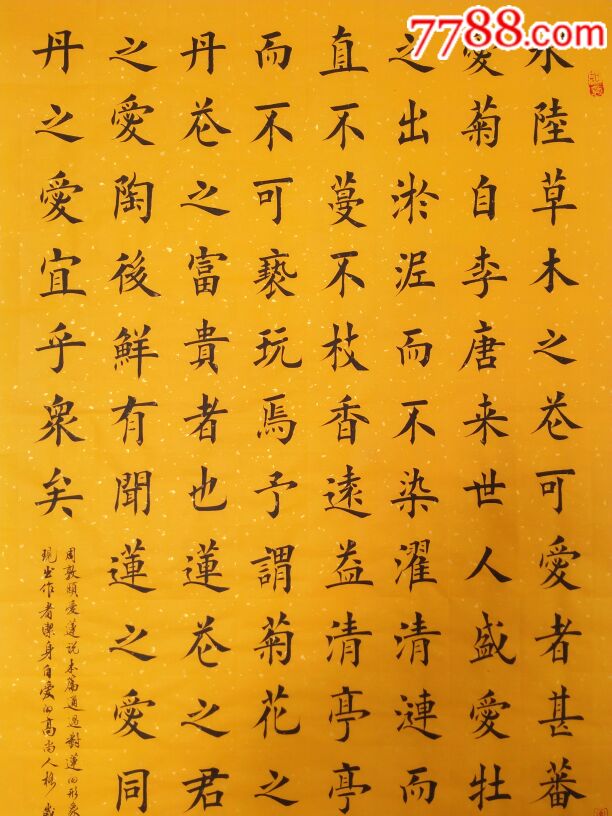 7788.com
水陸草木之花可愛者甚蕃
愛菊自李唐来世人盛愛牡
之出淤泥而不染濯清漣而
直不蔓不枝香遠益清亭亭
而不可褻玩焉予謂菊花之
丹花之富貴者也蓮花之君
之愛陶後鮮有聞蓮之愛同
丹之愛宜乎衆矣
周敦頤愛蓮説本篇通過對蓮的形象
現出作者潔身自愛的高尚人格